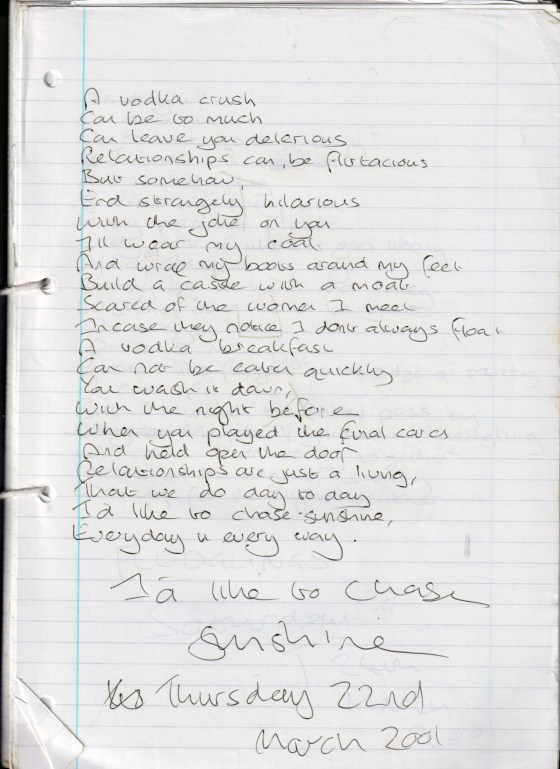 A vodka crush
Can be to much
Can leave you delerious
Relationships can, be flirtacious
But somehow,
End strangely hilarious
With the joke on you
I'll wear my coat
And wrap my boots around my feet
Build a castle with a moat
Scared of the women I meet
Incase they notice I don't always float
A vodka breakfast
Can not be eaten quickly
You wash it down,
With the night before
When you played the final cards
And held open the door
Relationships are just a living,
That we do day to day
I'd like to chase sunshine,
Everyday in every way.
I'd like to chase
sunshine
Thursday 22nd
March 2001